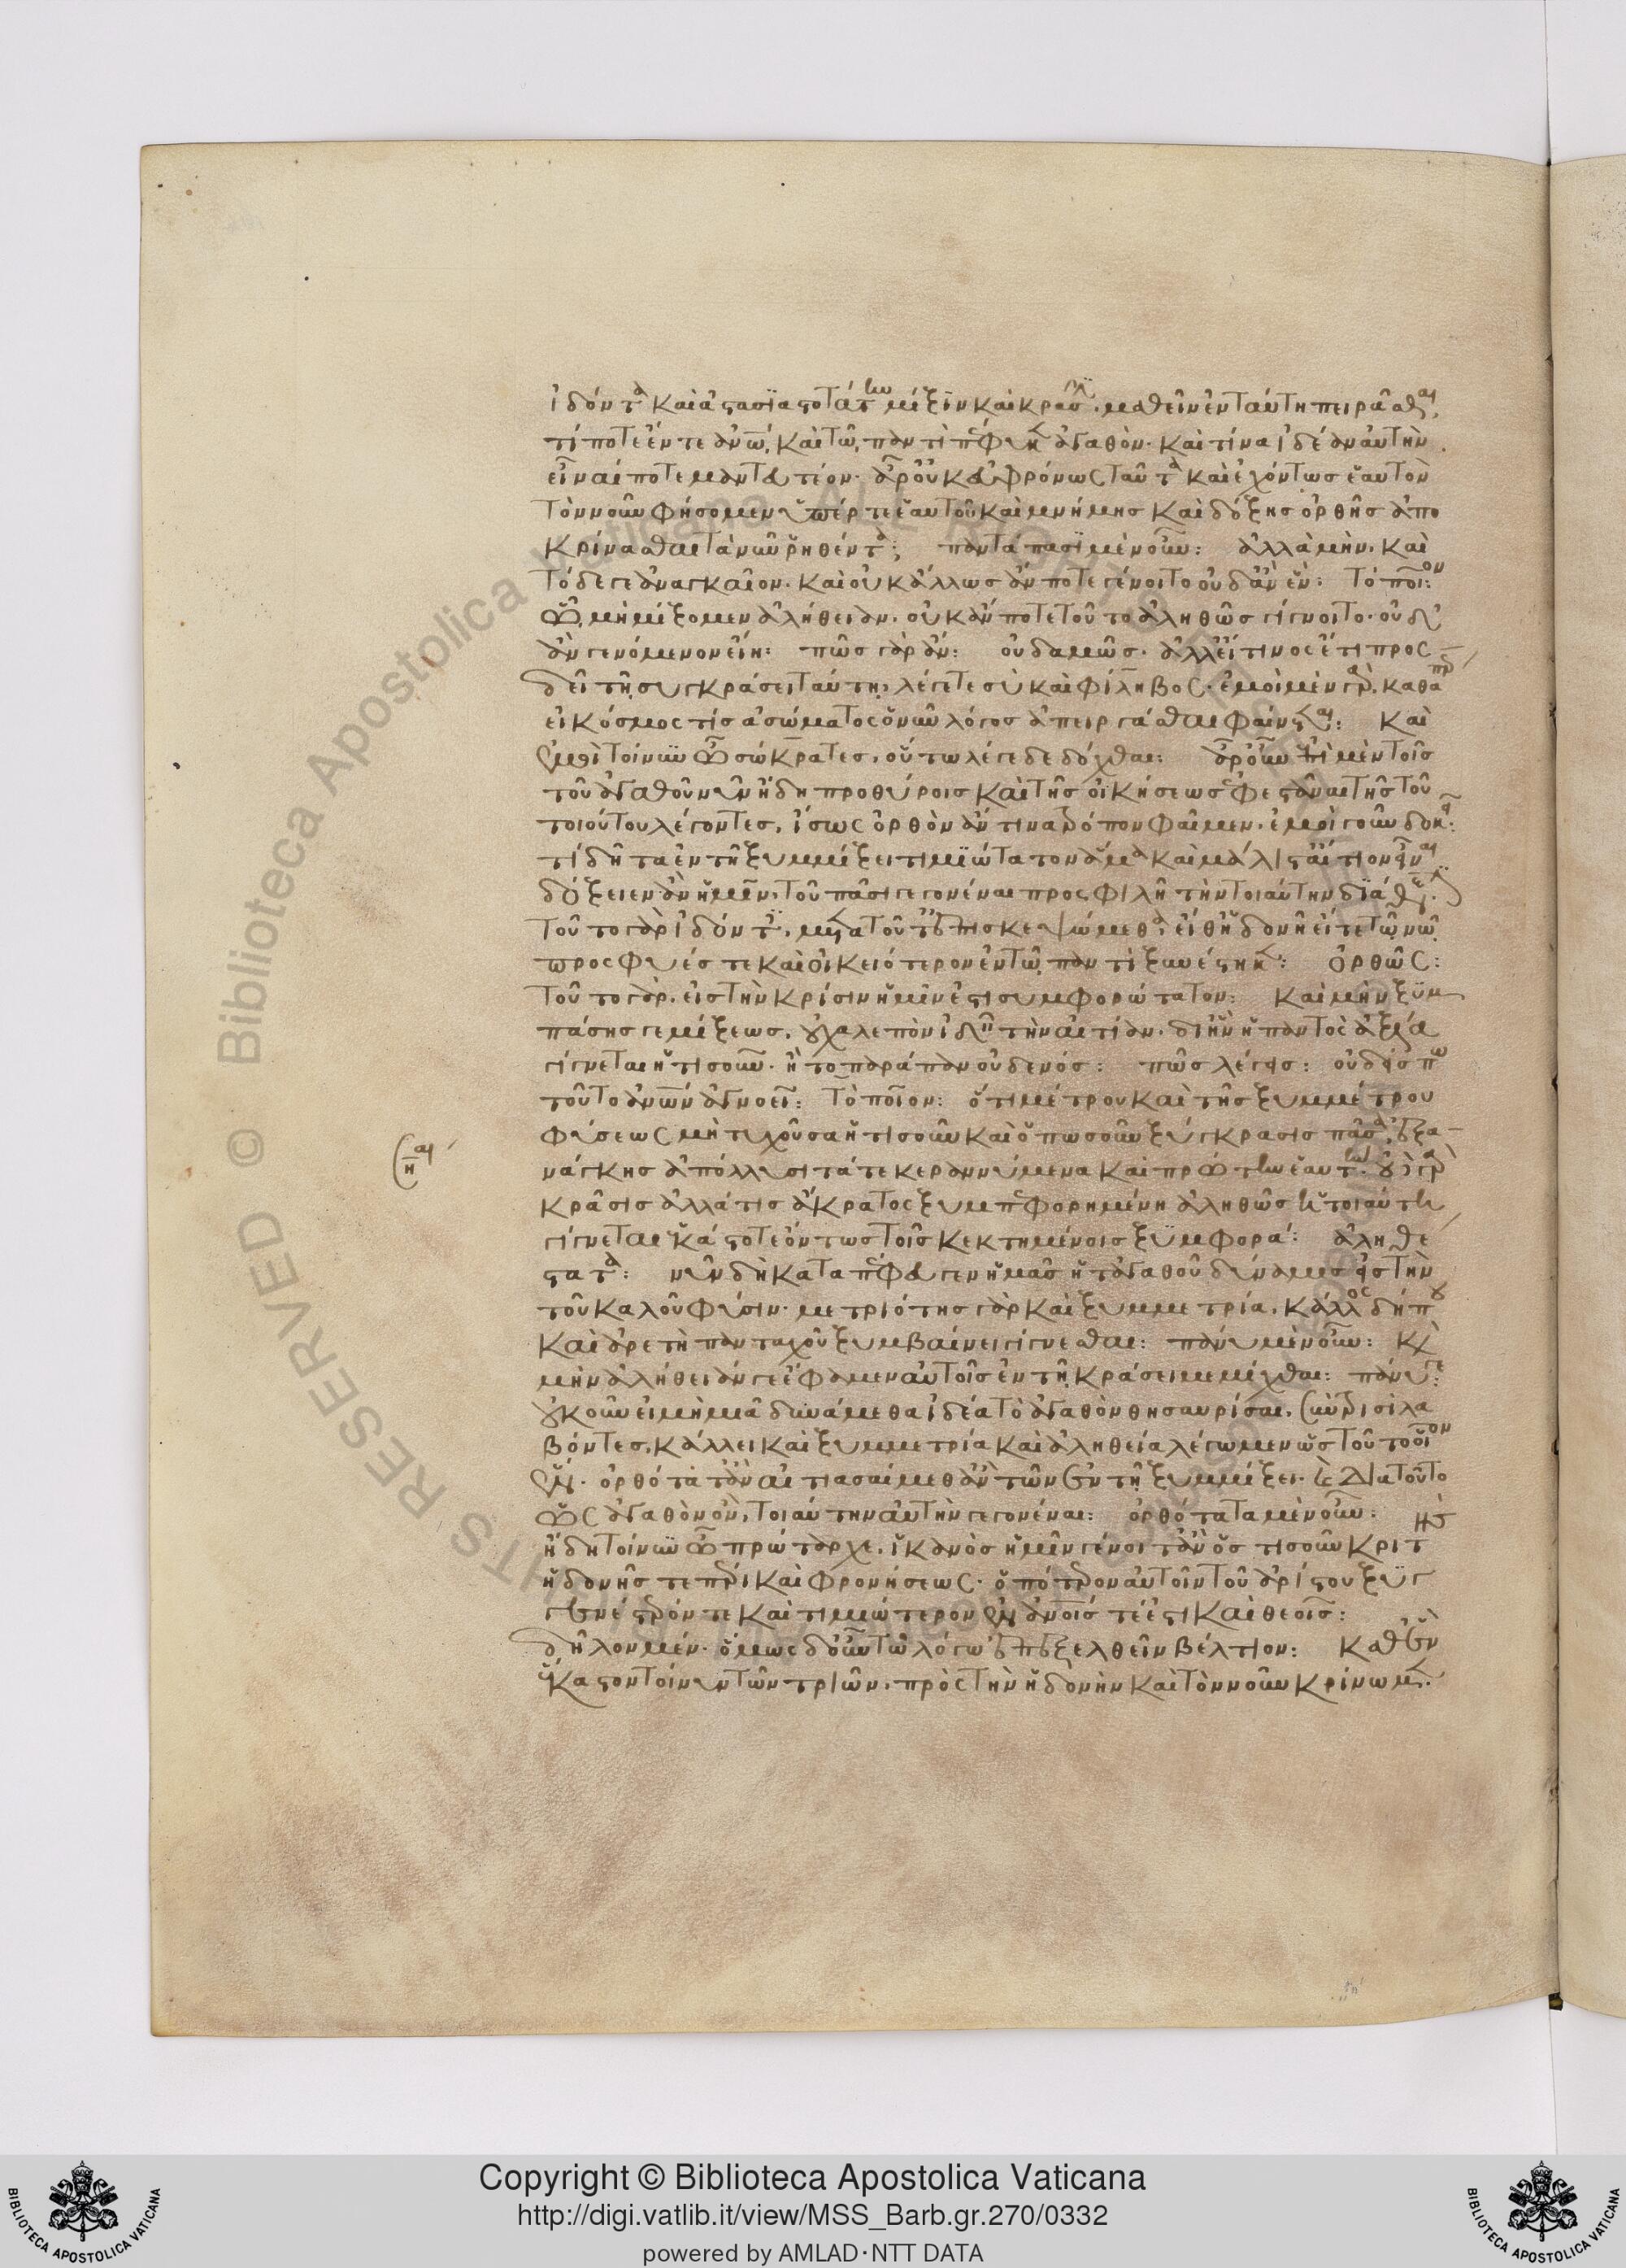 ἰδόντα καὶ ἀστασιαστοτάτην μίξιν καὶ κρᾶσιν. μαθεῖν ἐν ταύτη πειρᾶσθαι,
τί ποτε ἔν τε ἀνω καὶ τῶ παντὶ πέφυκεν ἀγαθὸν. καὶ τίνα ἰδέαν αὐτὴν
εἶναί ποτε μαντευτέον. ἆρ' οὐκ ἐμφρόνως ταῦτα καὶ ἐχόντως ἑαυτὸν
τὸν νοῦν φήσομεν ὑπέρ τε ἑαυτοῦ καὶ μνήμης καὶ δόξης ὀρθῆς ἀπο
κρίνασθαι τὰ νῦν ῥηθέντα; παντάπασι μὲν οὖν: ἀλλὰ μὴν. καὶ
τό δε γε ἀναγκαῖον. καὶ οὐκ ἄλλως ἄν ποτε γένοιτο οὐδ' ἂν ἕν: τὸ ποῖον:
ὧ μὴ μίξομεν ἀλήθειαν. οὐκ ἄν ποτε τοῦτο ἀληθῶς γίγνοιτο. οὐδ'
ἂν γενόμενον εἴη: πῶς γὰρ ἄν: οὐδαμῶς. ἀλλ' εἴ τινος ἔτι προσ
δεῖ τῆ συγκράσει ταύτη, λέγετε σὺ καὶ φίληβος. ἐμοὶ μὲν γὰρ, καθαπερ
εἰ κόσμος τίς ἀσώματος ὁ νῦν λόγος ἀπειργάσθαι φαίνεται: καὶ
ἐμοὶ τοίνυν ὦ σώκρατες, οὕτω λέγε δεδόχθαι: ἆρ' οὖν ἐπὶ μὲν τοῖς
τοῦ ἀγαθοῦ νῦν ἤδη προθύροις καὶ τῆς οἰκήσεως ἐφεστάναι τῆς τοῦ
τοιούτου λέγοντες, ἴσως ὀρθὸν ἄν τινα τρόπον φαῖμεν. ἐμοὶ γοῦν δοκεῖ:
τί δῆτα ἐν τῆ ξυμμίξει τιμιώτατον ἅμα καὶ μάλιστ' αἴτιον εἶναι
δόξειεν ἂν ἡμῖν, τοῦ πᾶσι γεγονέναι προσφιλῆ τὴν τοιαύτην διάθεσιν.
τοῦτο γὰρ ἰδόντες, μετὰ τοῦτ' ἐπισκεψώμεθα, εἴθ' ἡδονῆ εἴτε τῶ νῶ
προσφυέστε καὶ οἰκειότερον ἐν τῶ παντὶ ξυνέστηκεν: ὀρθῶς:
τοῦτο γὰρ. εἰς τὴν κρίσιν ἡμῖν ἐστι συμφορώτατον: καὶ μὴν ξυμ
πάσης γε μίξεως, οὐ χαλεπὸν ἰδεῖν τὴν αἰτίαν. δι' ἣν ἢ παντὸς ἀξία
γίγνεται ἡτισοῦν. ἢ τοπαράπαν οὐδενός: πῶς λέγεις: οὐδείς που
τοῦτο ἀνων ἀγνοεῖ: τὸ ποῖον: ὅτι μέτρου καὶ τῆς ξυμμέτρου
φύσεως μὴ τυχοῦσα ἡτισοῦν καὶ ὁπωσοῦν ξύγκρασις πᾶσα, ἐξα
νάγκης ἀπόλλυσι τά τε κεραννύμενα καὶ πρώτην ἑαυτήν. οὐδὲ γὰρ
κρᾶσις ἀλλά τις ἄκρατος ξυμπεφορημένη ἀληθῶς ἡ τοιαύτη
γίγνεται ἑκάστοτε ὄντως τοῖς κεκτημένοις ξυμφορά: ἀληθέ
στατα: νῦν δὴ καταπέφευγεν ἡμᾶς ἡ τἀγαθοῦ δύναμις εἰς τὴν
τοῦ καλοῦ φύσιν. μετριότης γὰρ καὶ ξυμμετρία, κάλλος δήπου
καὶ ἀρετὴ πανταχοῦ ξυμβαίνει γίγνεσθαι: πάνυ μὲν οὖν: καὶ
μὴν ἀλήθειάν γε ἔφαμεν αὐτοῖς ἐν τῆ κράσει μεμίχθαι: πάνυ γε:
οὐκοῦν εἰ μὴ μιᾶ δυνάμεθα ἰδέα τὸ ἀγαθὸν θησαυρίσαι, σὺν τρισὶ λα
βόντες, κάλλει καὶ ξυμμετρία καὶ ἀληθεία λέγωμεν ὡς τοῦτο οἷον
ἕν. ὀρθότατ' ἂν αἰτιασαίμεθ' ἂν τῶν ἐν τῆ ξυμμίξει. καὶ διὰ τοῦτο
ὡς ἀγαθὸν ὂν, τοιαύτην αὐτὴν γεγονέναι: ὀρθότατα μὲν οὖν:
ἤδη τοίνυν ὦ πρώταρχε. ἱκανὸς ἡμῖν γένοιτ' ἂν ὁστισοῦν κριτὴς
ἡδονῆς τε πέρι καὶ φρονήσεως. ὁπότερον αὐτοῖν τοῦ ἀρίστου ξυγ
γενέστερόν τε καὶ τιμιώτερον ἐν ἀνοις τέ ἐστι καὶ θεοῖς:
δῆλον μέν. ὅμως δ' οὖν τῶ λόγω ἐπεξελθεῖν βέλτιον: καθ' ἓν
ἕκαστον τοίνυν τῶν τριῶν, πρὸς τὴν ἡδονὴν καὶ τὸν νοῦν κρίνωμεν.
Copyright © Biblioteca Apostolica Vaticana
http://digi.vatlib.it/view/MSS_Barb.gr.270/0332
powered by AMLAD·NTT DATA